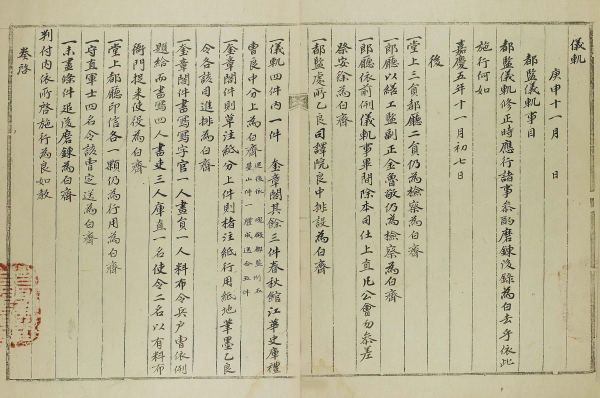 儀軌
庚申十一月 日
都監儀軌事目
都監儀軌修正時應行諸事參酌磨鍊後錄爲白去乎依此
施行何如
嘉慶五年十一月初七日
後
一堂上三員都廳二員仍爲檢察爲白齊
一郎廳以繕工監副正金魯敬仍爲檢察爲白齊
一郎廳依前例儀軌事畢間除本司仕上直凡公會勿參差
祭安徐爲白齊
一都監處所乙良司譯院良中排設爲白齊
一儀軌四件內一件 奎章閣其餘三件春秋館江華史庫禮
曹良中分上爲白齊
一奎章閣件則草注紙分上件則楮注紙行用紙地筆墨乙良
令各該司進排爲白齊
一奎章閣件書寫寫字官一人畫員一人料布令兵戶曹依例
題給而書寫四人書吏三人庫直一名使令二名以有料布
衙門捉來使役爲白齊
一堂上都廳印信各一顆仍爲行用爲白齊
一守直軍士四名令該曹定送爲白齊
一未盡條件追後磨鍊爲白齊
判付內依所啓施行爲良如敎